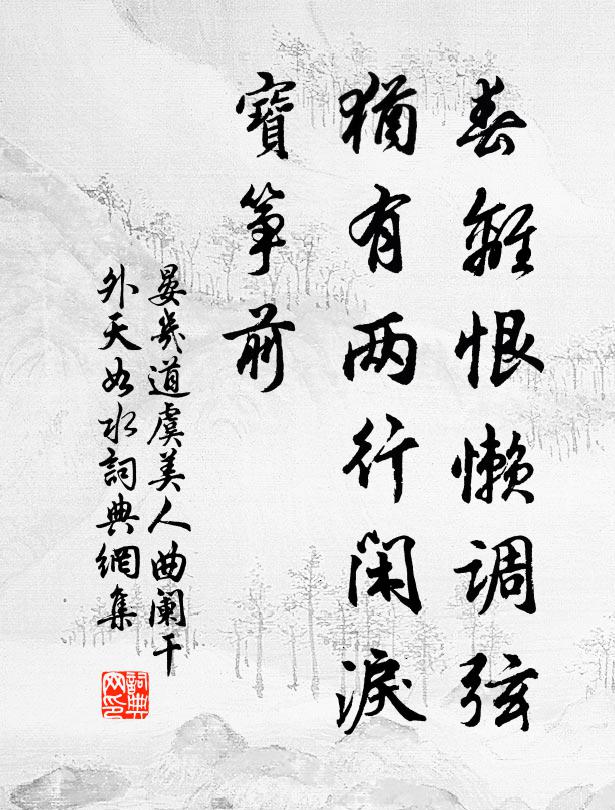 春離恨懶调弦
猶有两行閑淚
寶筝前
晏幾道虞美人曲阑干
外天如水詞典網集
詞典
网印